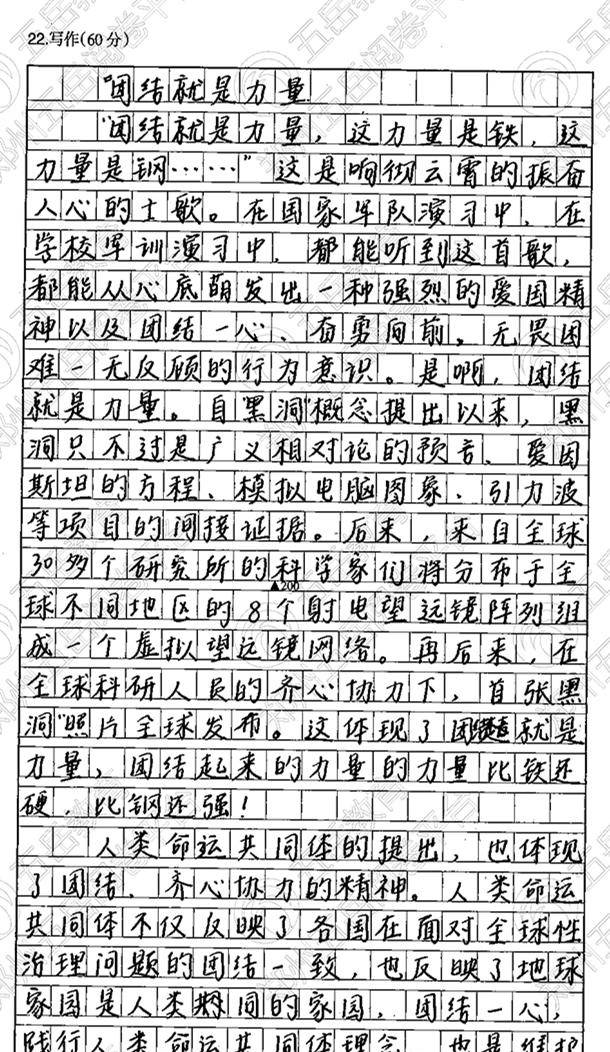 22.写作(60分)
"团结就是力量
"团结就是力量，这力量是铁，这
力量是钢……"这是响彻云霄的振奋
人心的士歌。在国家军队演习中，在
学校军训演习中，都能听到这首歌，
都能从心底萌发出一种强烈的爱国精
神以及团结一心、奋勇向前、无畏困
难一无反顾的行为意识。是啊，团结
就是力量。自"黑洞"概念提出以来，黑
洞只不过是广义相对论的预言、爱因
斯坦的方程、模拟电脑图象、引力波
等项目的间接证据。后来，来自全球
30多个研究所的科学家们将分布于全
▲200
球不同地区的8个射电望远镜阵列组
成一个虚拟望远镜网络。再后来，在
全球科研人员的齐心协力下，首张黑
洞"照片全球发布。这体现了团结就是
力量，团结起来的力量的力量比铁还
硬，比钢还强！
人类命运共同体的提出，也体现
了团结、齐心协力的精神。人类命运
共同体不仅反映了各国在面对全球性
治理问题的团结一致，也反映了地球
家园是人类共同的家园，团结一心，
践行人类命运共同体理念，也是维护